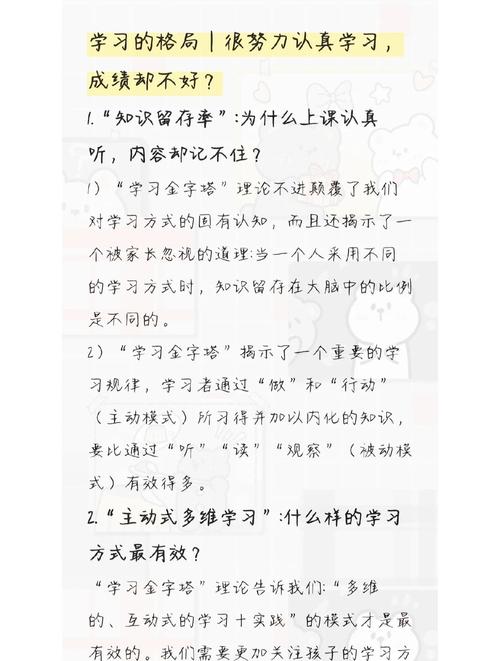 学习的格局|很努力认真学习，
成绩却不好？
1.“知识留存率”:为什么上课认真
听，内容却记不住？
1）“学习金字塔”理论不进颠覆了我们
对学习方式的固有认知，而且还揭示了一
个被家长忽视的道理:当一个人采用不同
的学习方式时，知识留存在大脑中的比例
是不同的。
2）“学习金字塔”揭示了一个重要的学
习规律，学习者通过“做”和“行动”
（主动模式）所习得并加以内化的知识，
要比通过“听”“读”“观察”（被动模
式）有效得多。
2.“主动式多维学习”:什么样的学习
方式最有效？
“学习金字塔”理论告诉我们:“多维
的、互动式的学习＋实践”的模式才是最
有效的。我们需要更加关注孩子的学习方